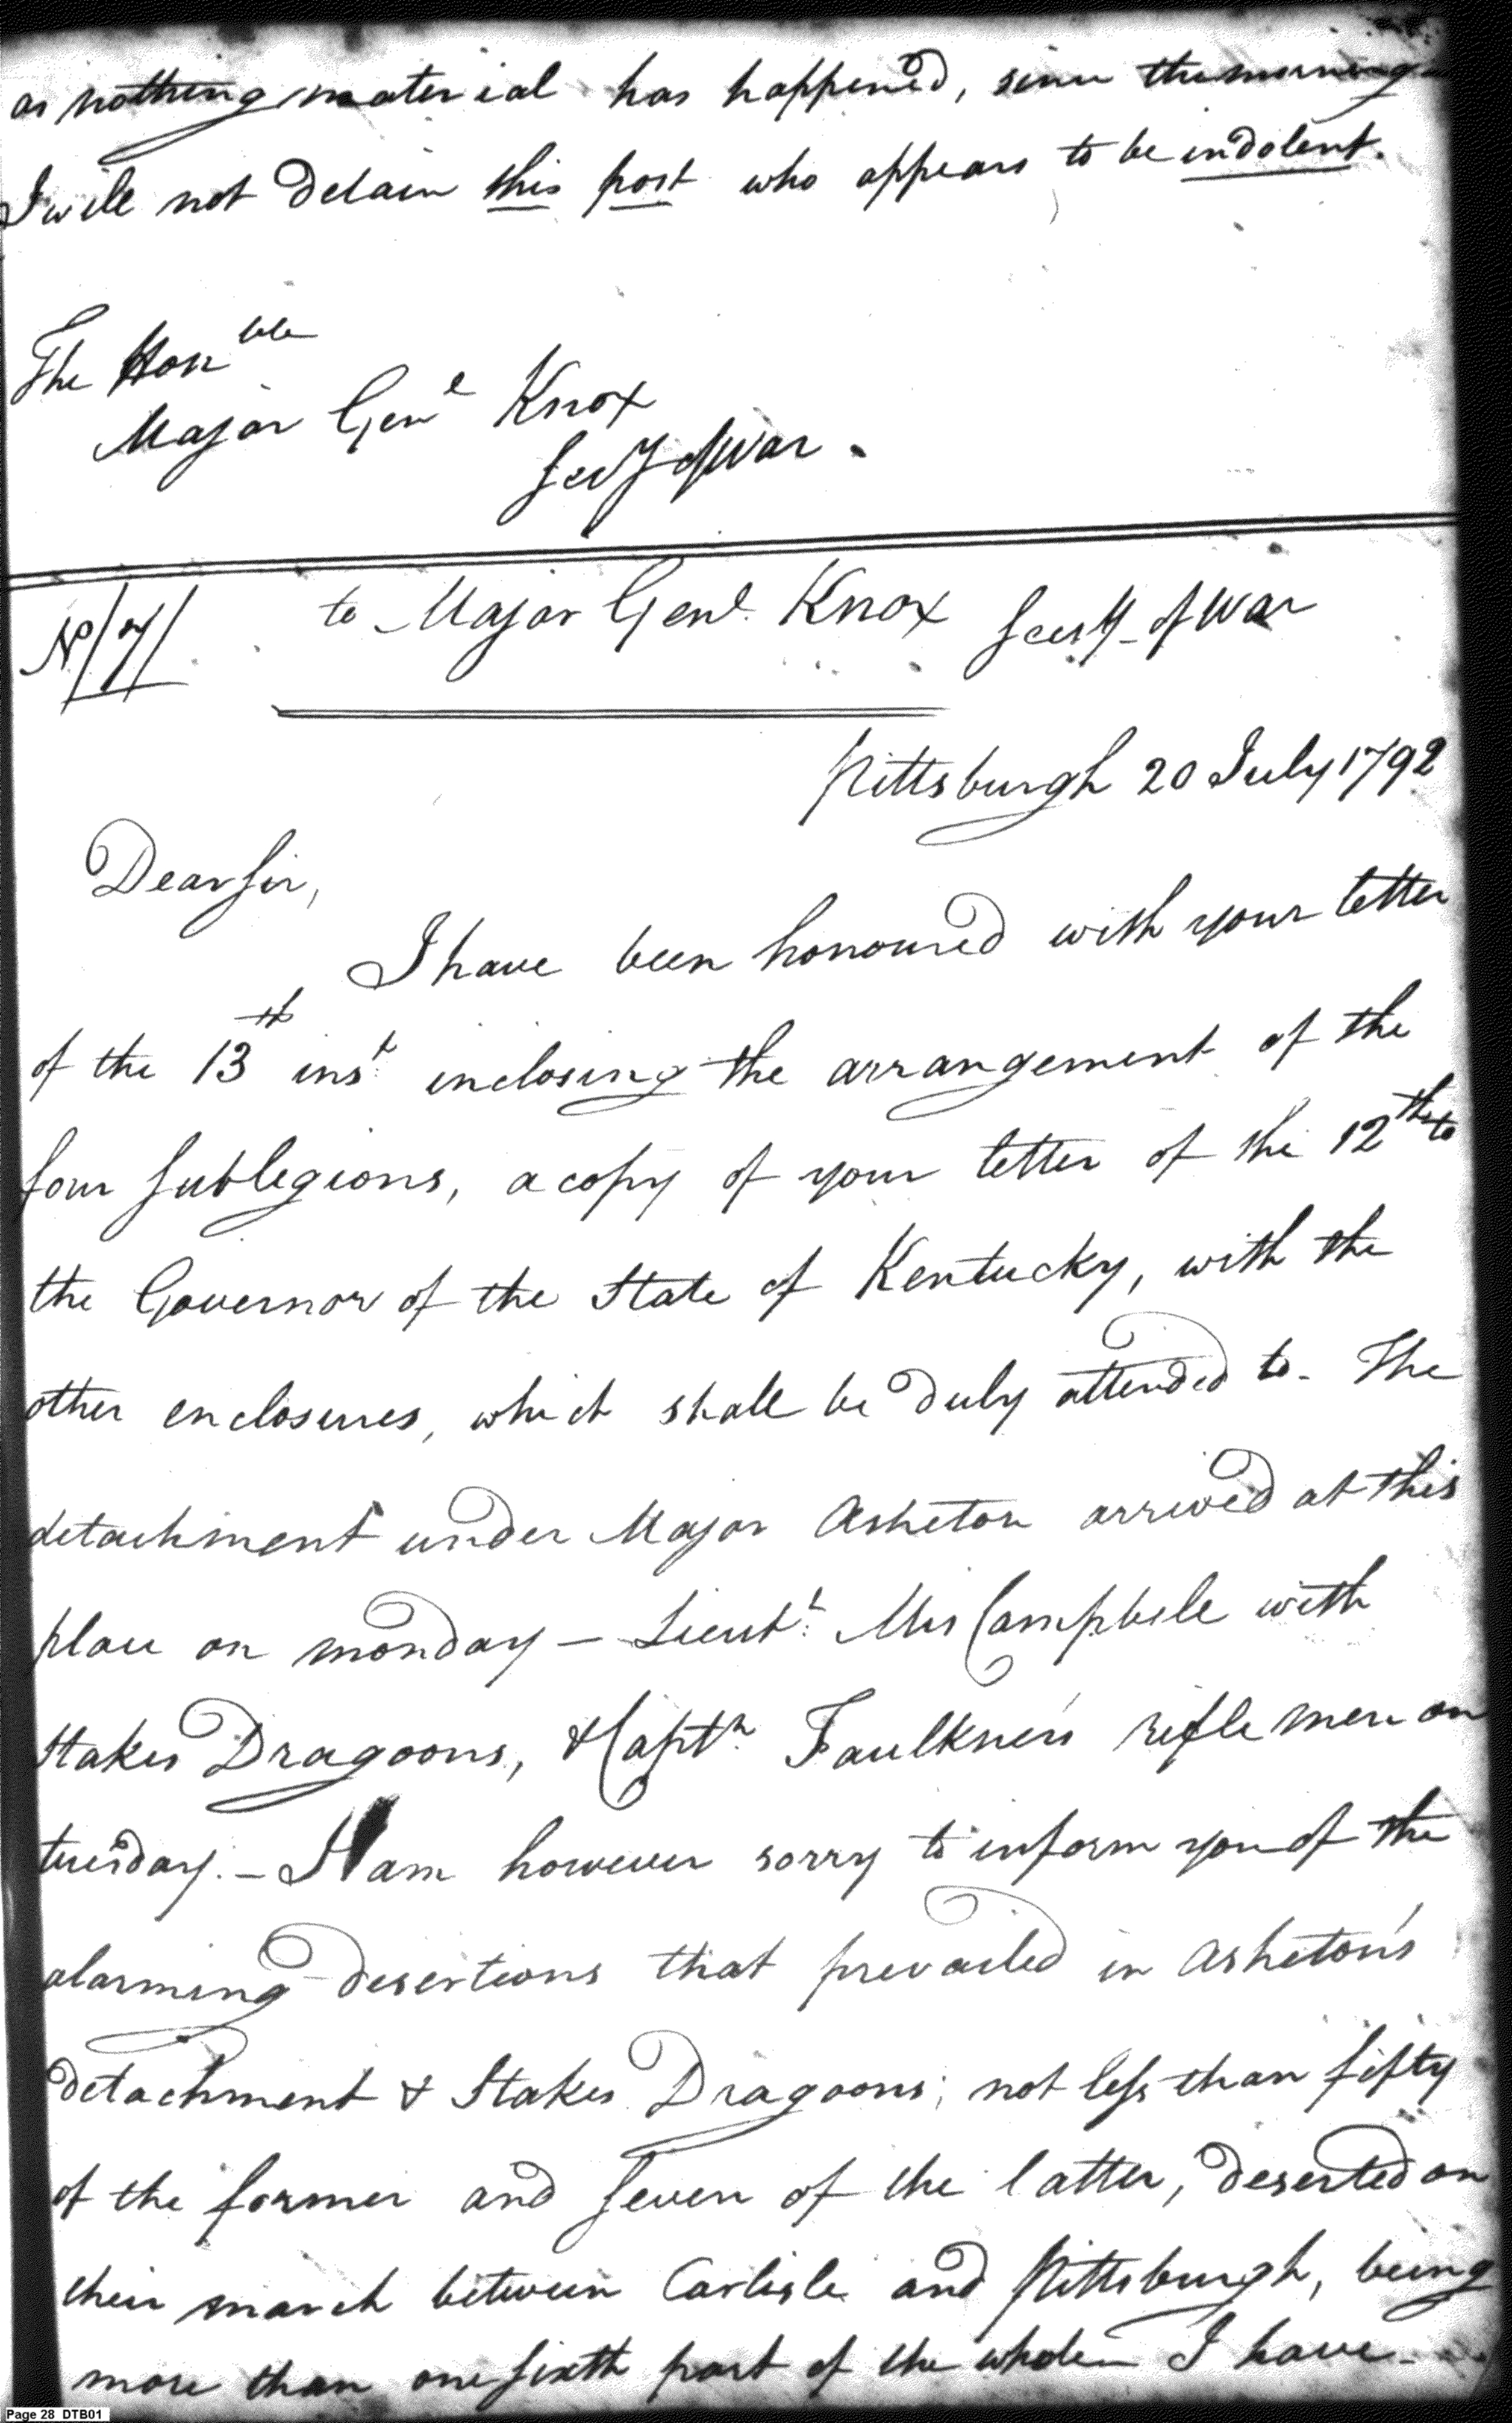 as nothing material has happened, since the morning
I will not detain this post who appears to be indolent.
The Honble
Major Genl Knox
Secy of War.
No/7/
to Major Genl. Knox Secry of War
Pittsburgh 20 July 1792
Dear Sir,
I have been honoured with your letter
of the 13th inst. inclosing the arrangement of the
four Sublegions, a copy of your letter of the 12th to
the Governor of the State of Kentucky, with the
other enclosures, which shall be duly attended to - The
detachment under Major Asheton arrived at this
place on monday — Lieut. Mis Campbell with
Stakes Dragoons, & Captn Faulkner's rifle men on
tuesday. - I am however sorry to inform you of the
alarming desertions that prevailed in Asheton's
detachment & Stakes Dragoons; not less than fifty
of the former and Seven of the latter, deserted on
their march between Carlisle and Pittsburgh, being
more than one sixth part of the whole — I have -
Page 28 DTB01